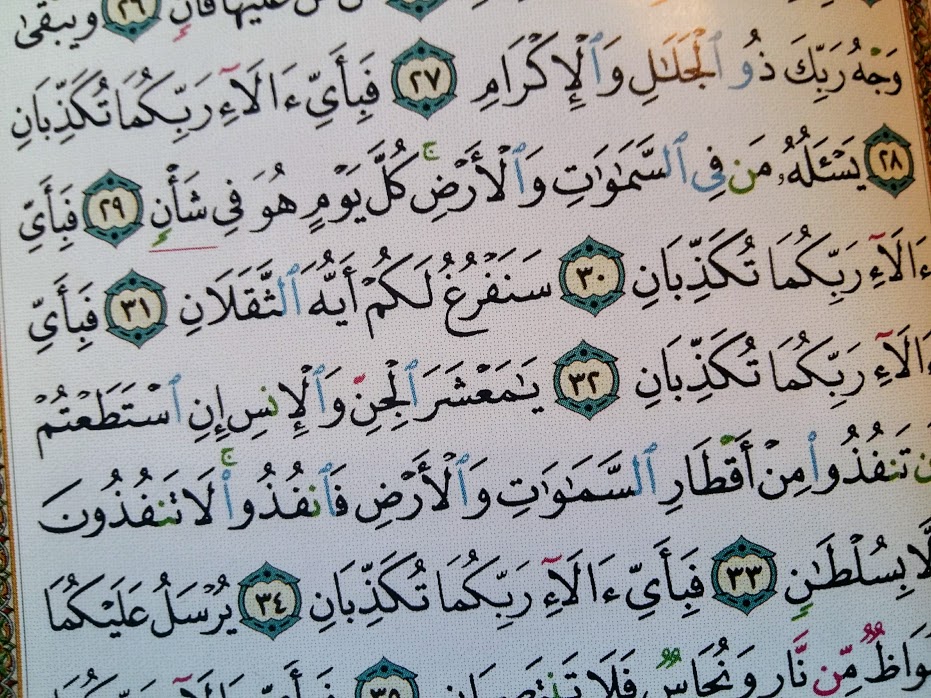 عَلَيْهَا فَانٍ ٢٦ وَيَبْقَىٰ
وَجْهُ رَبِّكَ ذُو ٱلْجَلَٰلِ وَٱلْإِكْرَامِ ٢٧ فَبِأَيِّ ءَالَآءِ رَبِّكُمَا تُكَذِّبَانِ
٢٨ يَسْـَٔلُهُۥ مَن فِي ٱلسَّمَٰوَٰتِ وَٱلْأَرْضِۚ كُلَّ يَوْمٍ هُوَ فِي شَأْنٍ ٢٩ فَبِأَيِّ
ءَالَآءِ رَبِّكُمَا تُكَذِّبَانِ ٣٠ سَنَفْرُغُ لَكُمْ أَيُّهَ ٱلثَّقَلَانِ ٣١ فَبِأَيِّ
ءَالَآءِ رَبِّكُمَا تُكَذِّبَانِ ٣٢ يَٰمَعْشَرَ ٱلْجِنِّ وَٱلْإِنسِ إِنِ ٱسْتَطَعْتُمْ
تَنفُذُوا۟ مِنْ أَقْطَارِ ٱلسَّمَٰوَٰتِ وَٱلْأَرْضِ فَٱنفُذُوا۟ۚ لَا تَنفُذُونَ
بِسُلْطَٰنٍ ٣٣ فَبِأَيِّ ءَالَآءِ رَبِّكُمَا تُكَذِّبَانِ ٣٤ يُرْسَلُ عَلَيْكُمَا
مِّن نَّارٍ وَنُحَاسٌ فَلَا تَنتَصِرَانِ ٣٥